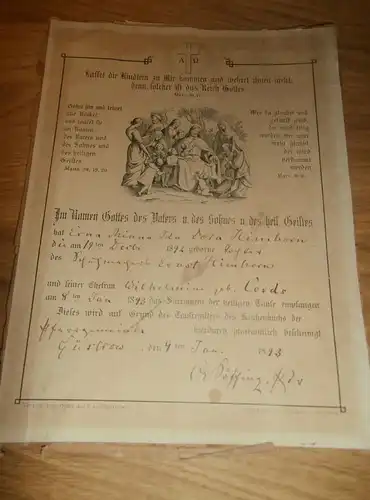 A Ω
Lasset die Kindlein zu Mir kommen und wehret ihnen nicht,
denn solcher ist das Reich Gottes
Gehet hin und lehret
alle Völker
und taufet sie
im Namen
des Vaters und
des Sohnes und
des heiligen
Geistes
Matth. 28, 19. 20
Wer da glaubet und
getauft wird,
der wird selig
werden, wer aber
nicht glaubet
der wird
verdammet
werden
Marc. 16. 16.
Im Namen Gottes des Vaters u. des Sohnes u. des heil. Geistes
hat Erna Minna Ida Dora Kirnborn
die am 18ten Decbr 1892 geborne Tochter
des Schuhmachers Ernst Kirnborn
und seiner Ehefrau Wilhelmine geb. Cords
am 8ten Jan 1893 das Sacrament der heiligen Taufe empfangen
Dieses wird auf Grund des Taufregisters des Kirchenbuchs der
Pfarrgemeinde hierdurch pfarramtlich bescheinigt
Güstrow, den 4ten Jan 1893